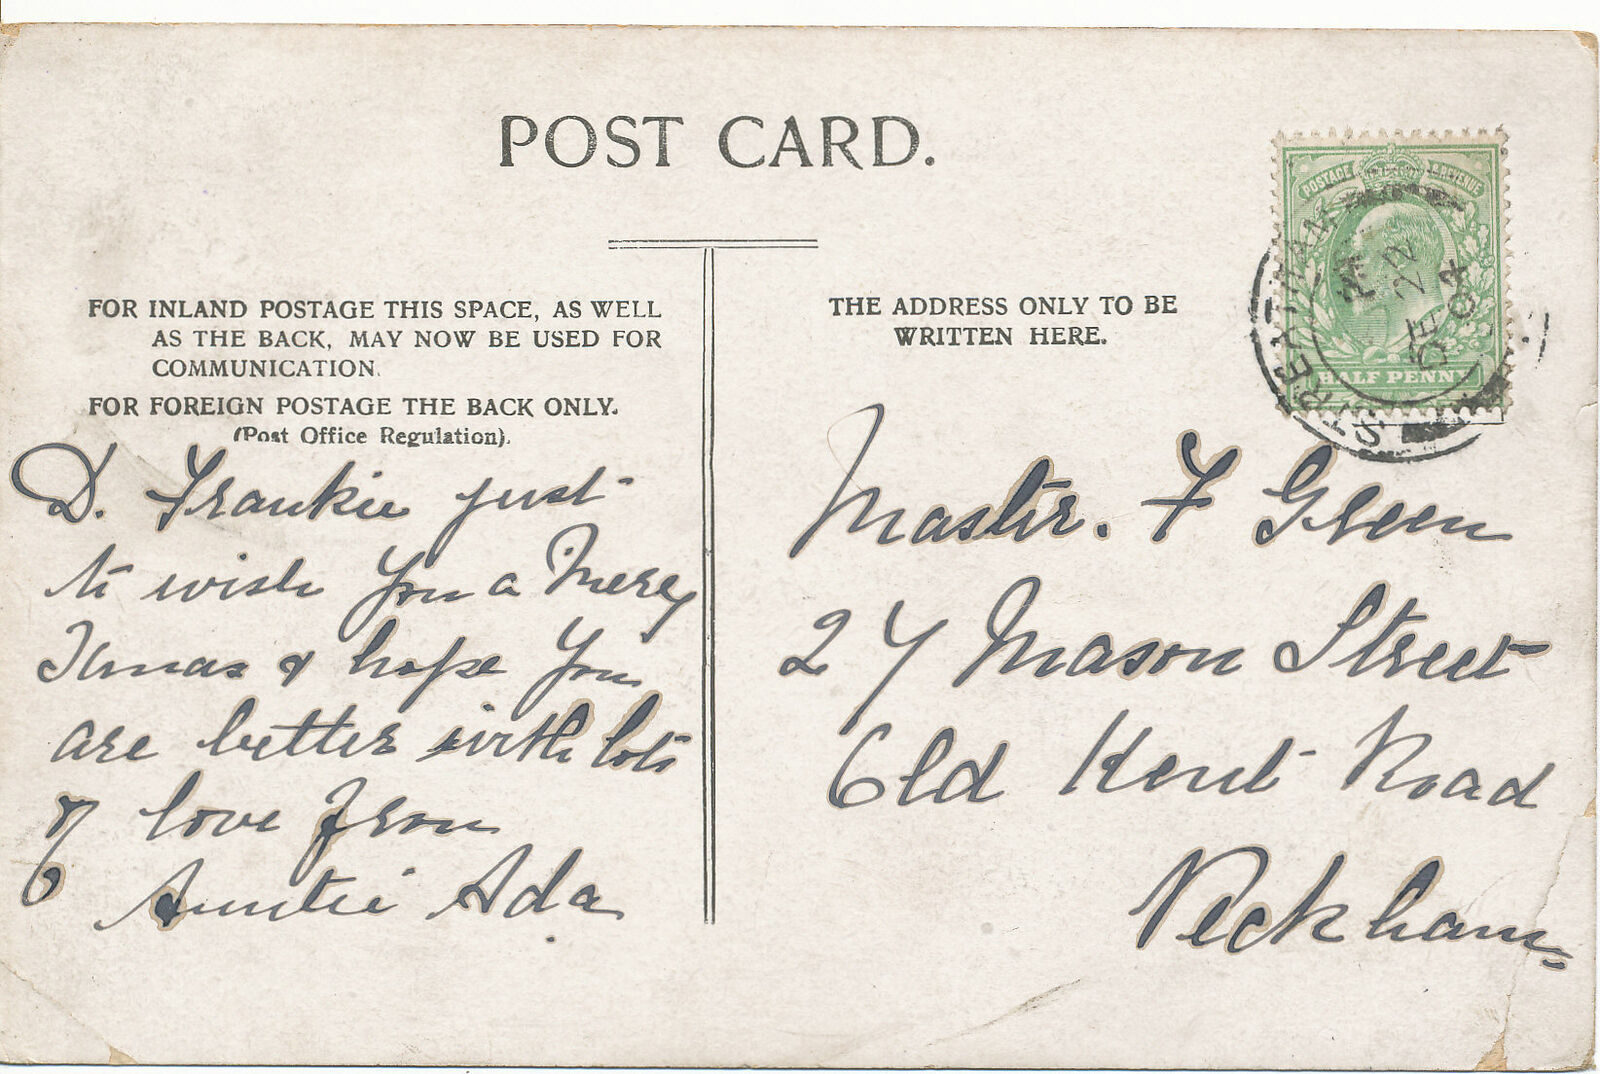 POST CARD.
FOR INLAND POSTAGE THIS SPACE, AS WELL
AS THE BACK, MAY NOW BE USED FOR
COMMUNICATION.
FOR FOREIGN POSTAGE THE BACK ONLY.
(Post Office Regulation).
D. Frankie just
to wish you a Merry
Xmas & hope you
are better with lots
of love from
Auntie Ada
THE ADDRESS ONLY TO BE
WRITTEN HERE.
Master. F Green
27 Mason Street
Old Kent Road
Peckham
POSTAGE REVENUE
HALF PENNY
STREATHAM
DE 22
04